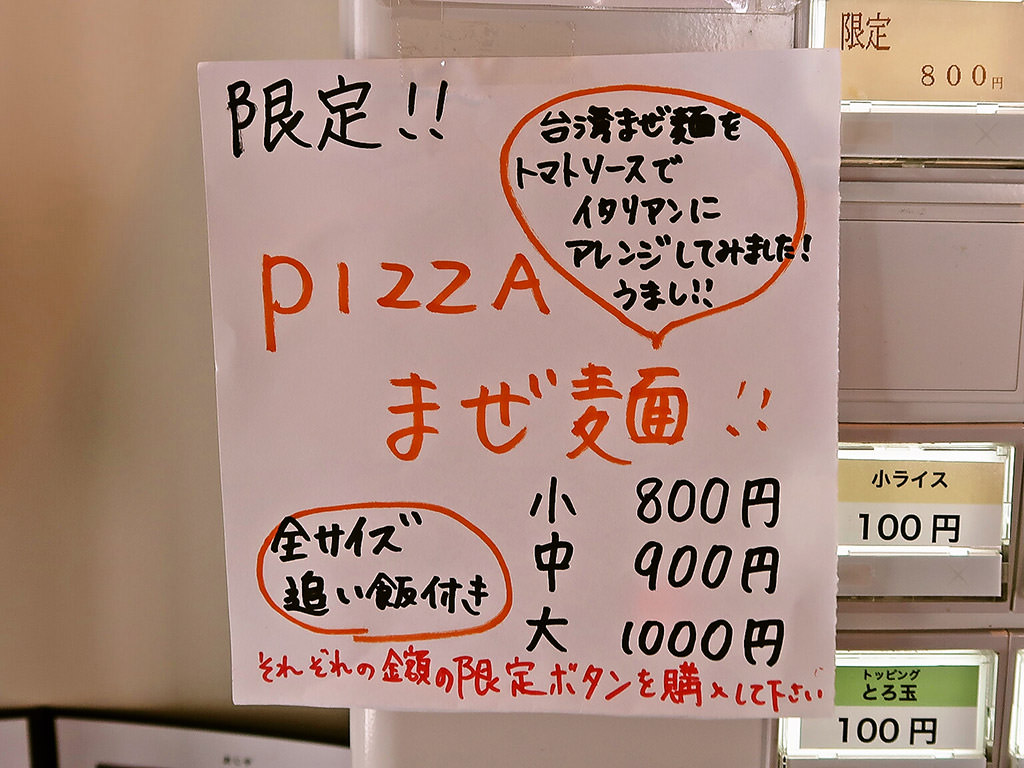 限定!!
台湾まぜ麺を
トマトソースで
イタリアンに
アレンジしてみました!
うまし!!
PIZZA
まぜ麺!!
小 800円
中 900円
大 1000円
全サイズ
追い飯付き
それぞれの金額の限定ボタンを購入して下さい
限定
800円
小ライス
100円
トッピング
とろ玉
100円